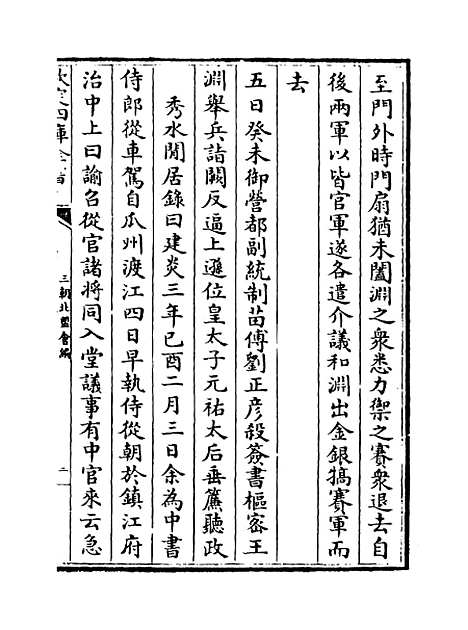 至門外時門扇猶未闔淵之衆悉力禦之賽衆退去自
後兩軍以皆官軍遂各遣介議和淵出金銀犒賽軍而
去
五日癸未御營都副統制苗傅劉正彦殺簽書樞密王
淵舉兵詣闕反逼上遜位皇太子元祐太后垂簾聽政
秀水閒居錄曰建炎三年已酉二月三日余為中書
侍郎從車駕自瓜州渡江四日早執侍從朝於鎮江府
治中上曰諭名從官諸將同入堂議事有中官來云急
欽定四庫全書
三朝北盟會編
二